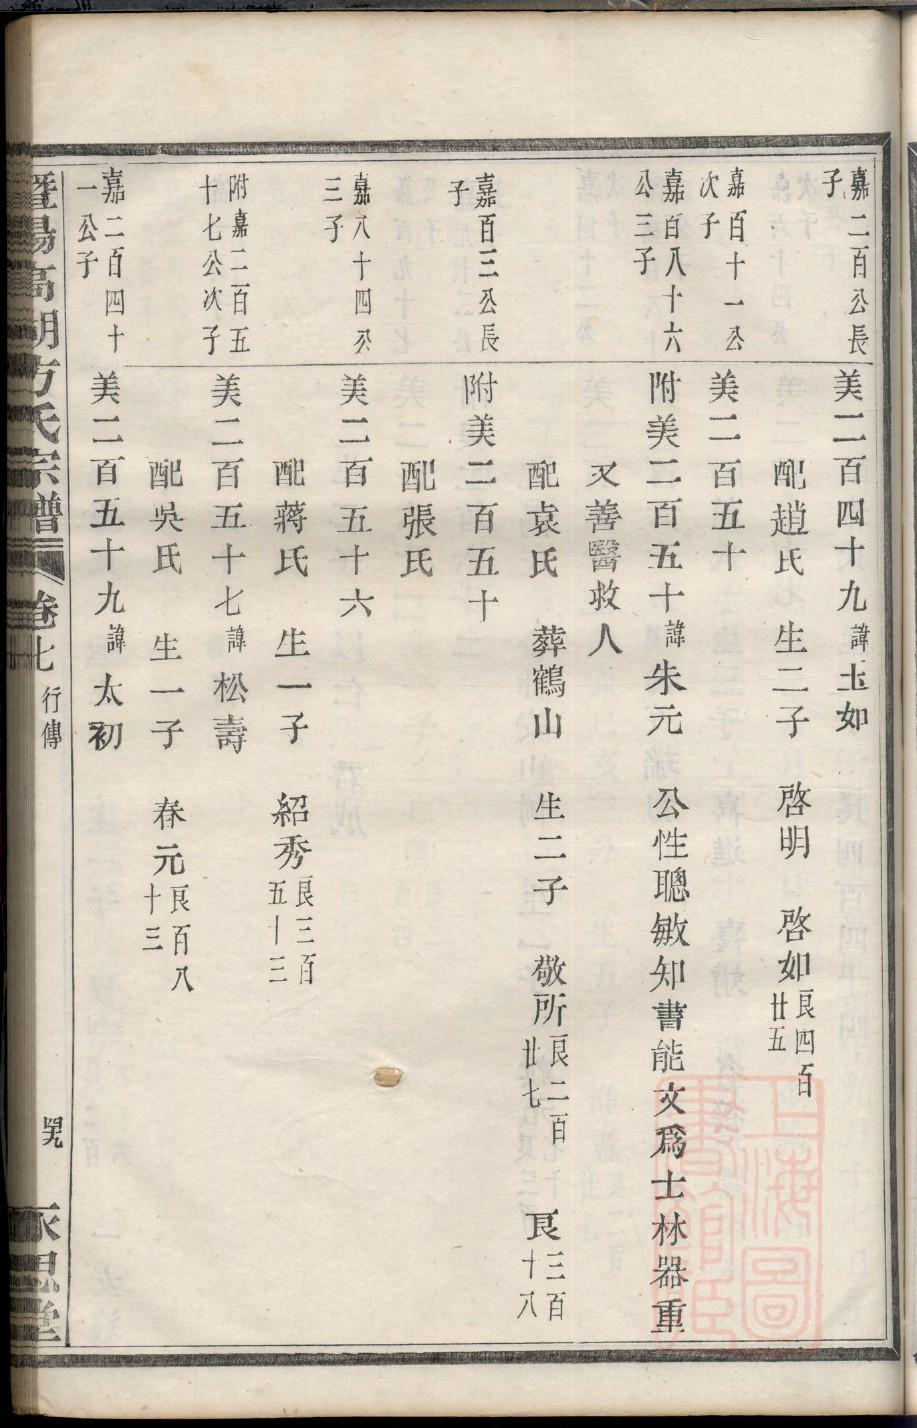 嘉二百公長
子
美二百四十九諱玉如
配趙氏 生二子 啓明 啓如艮四百廿五
嘉百十一公
次子
美二百五十
嘉百八十六
公三子
附美二百五十諱朱元 公性聰敏知書能文爲士林器重
又善醫救人
配袁氏 葬鶴山 生二子 敬所艮二百廿七 艮三百十八
嘉百三公長
子
附美二百五十
配張氏
嘉八十四公
三子
美二百五十六
配蔣氏 生一子 紹秀艮三百五十三
附嘉二百五
十七公次子
美二百五十七諱松壽
配吳氏 生一子 春元艮百八十三
嘉二百四十
一公子
美二百五十九諱太初
暨陽高湖方氏宗譜 卷七 行傳 永思堂
上海圖書館藏